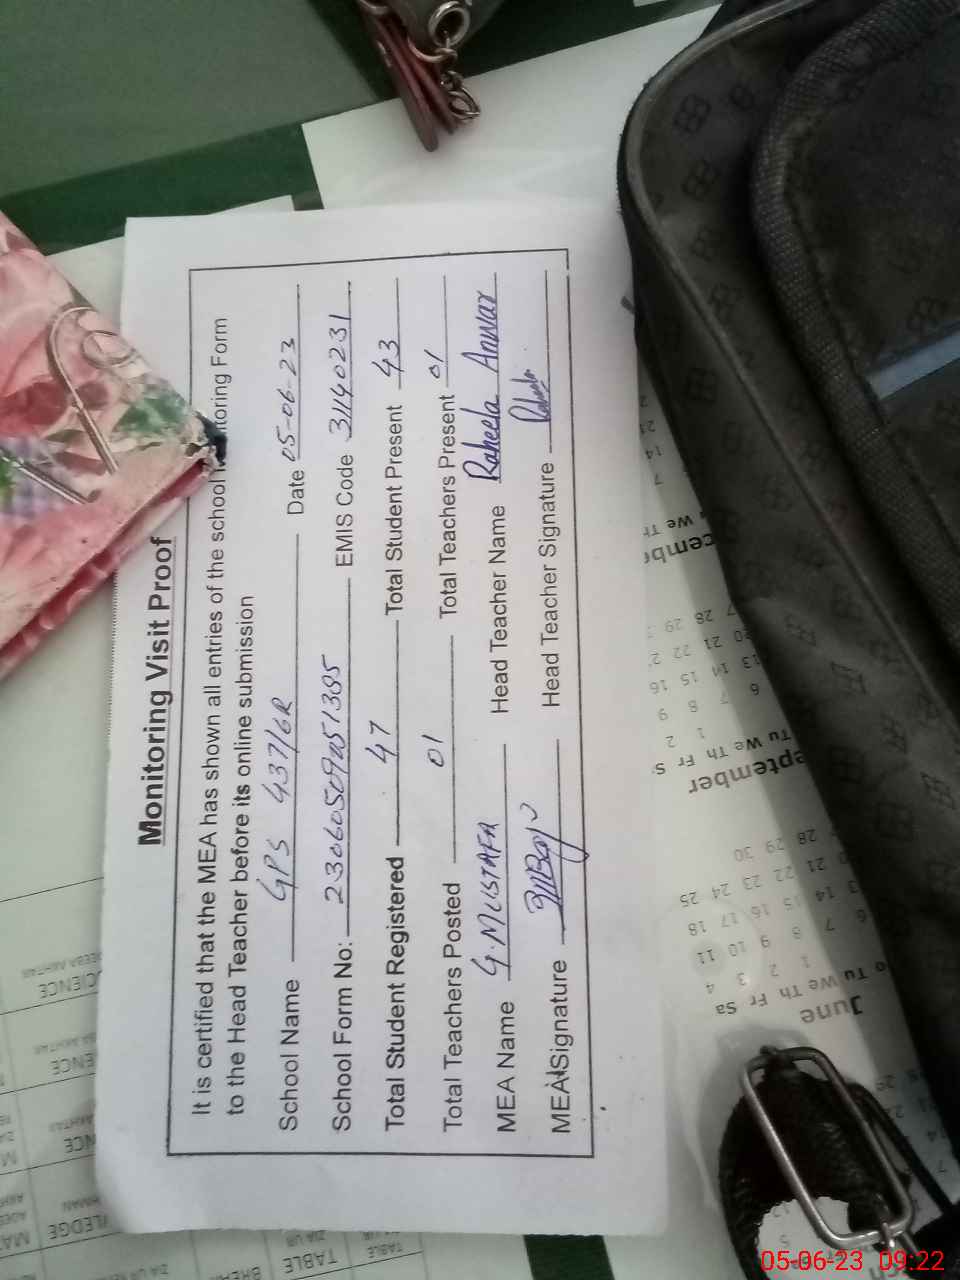 Monitoring Visit Proof
It is certified that the MEA has shown all entries of the school Form
to the Head Teacher before its online submission
School Name GPS 437/6R Date 05-06-23
School Form No: EMIS Code 31140231
Total Student Registered 47 Total Student Present 43
Total Teachers Posted 01 Total Teachers Present 01
MEA Name G.MUSTAFA Head Teacher Name Raheela Anwar
MEA Signature Head Teacher Signature Raheela
CIENCE
ENCE
NCE
LEDGE
TABLE
TABLE
June
Tu We Th Fr Sa
1 2 3 4
7 8 9 10 11
14 15 16 17 18
21 22 23 24 25
28 29 30
eptember
Tu We Th Fr S
1 2
6 7 8 9
13 14 15 16
20 21 22
28 29
05-06-23 09:22